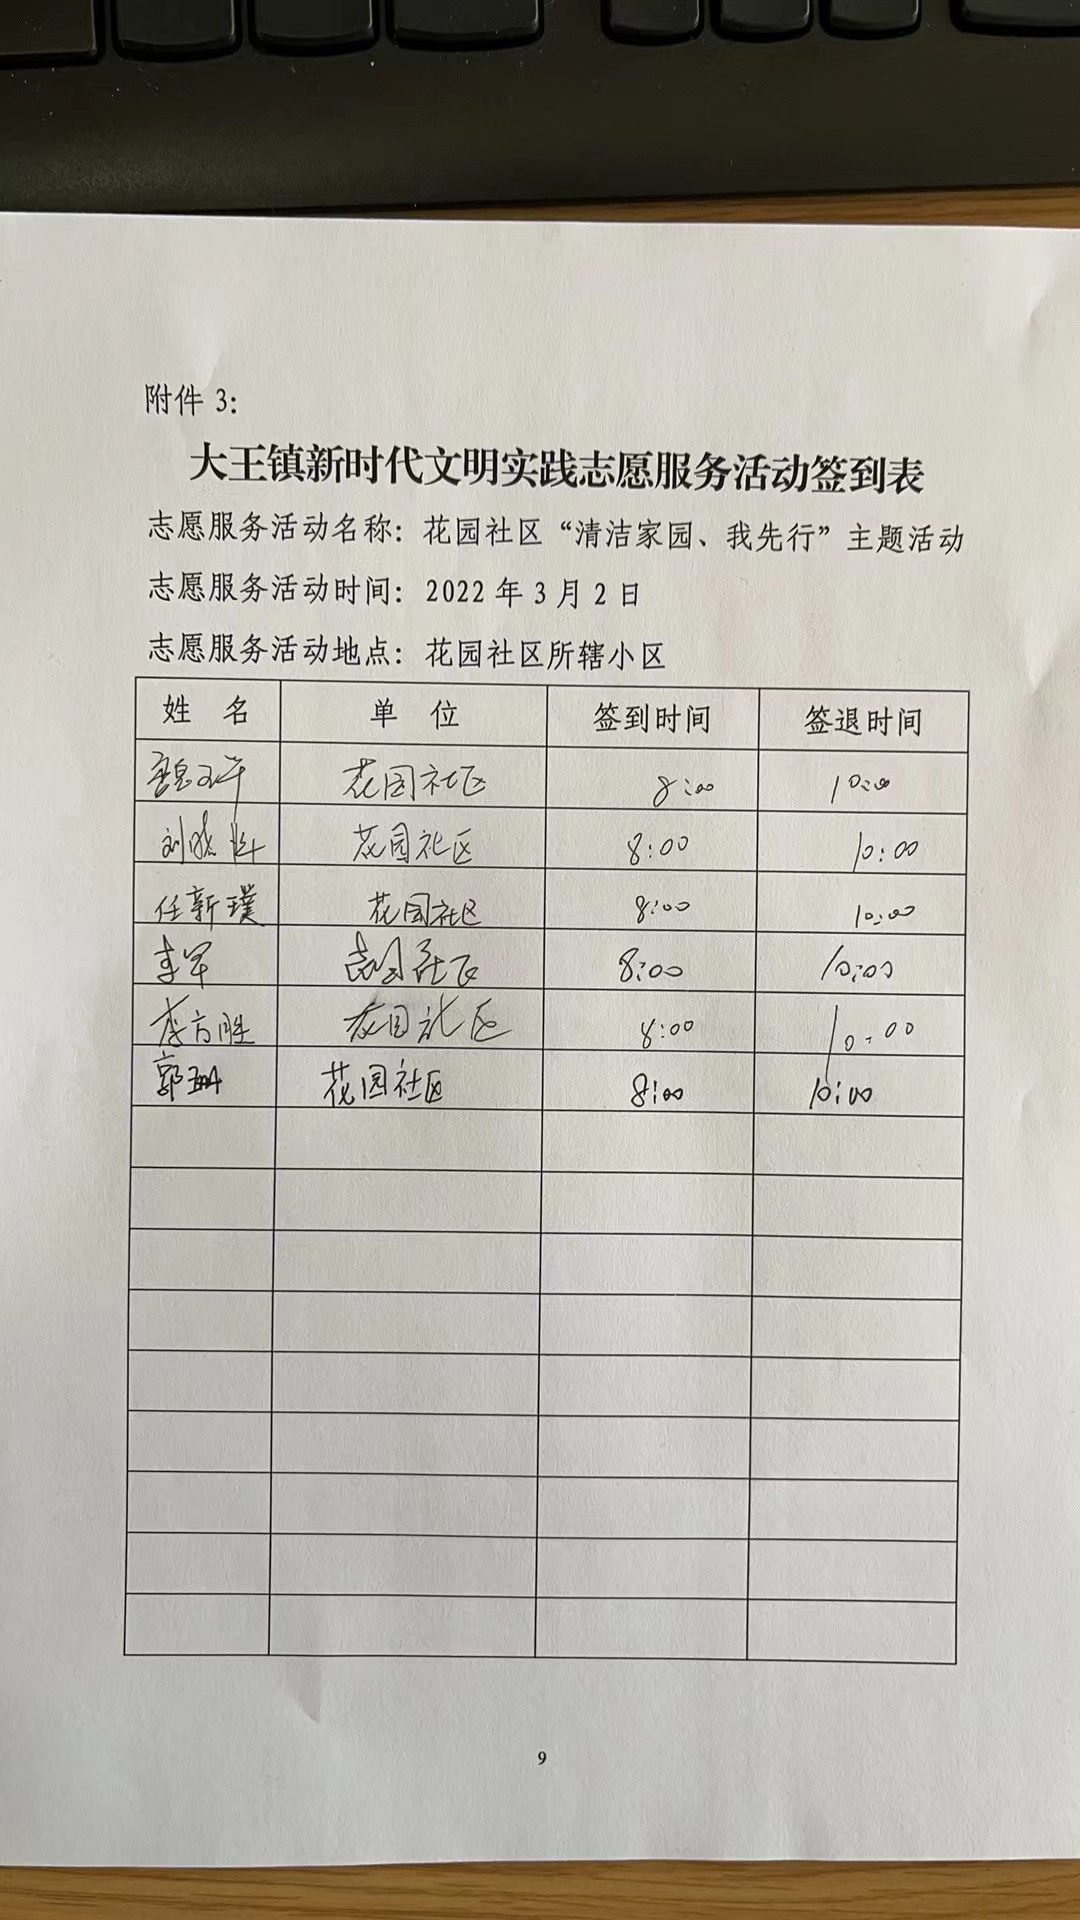 附件 3:
大王镇新时代文明实践志愿服务活动签到表
志愿服务活动名称: 花园社区“清洁家园、我先行”主题活动
志愿服务活动时间: 2022 年 3 月 2 日
志愿服务活动地点: 花园社区所辖小区
姓 名 单 位 签到时间 签退时间
花园社区 8:00 10:00
花园社区 8:00 10:00
任新璞 花园社区 8:00 10:00
李军 花园社区 8:00 10:00
李方胜 花园社区 8:00 10:00
郭珊 花园社区 8:00 10:00
9